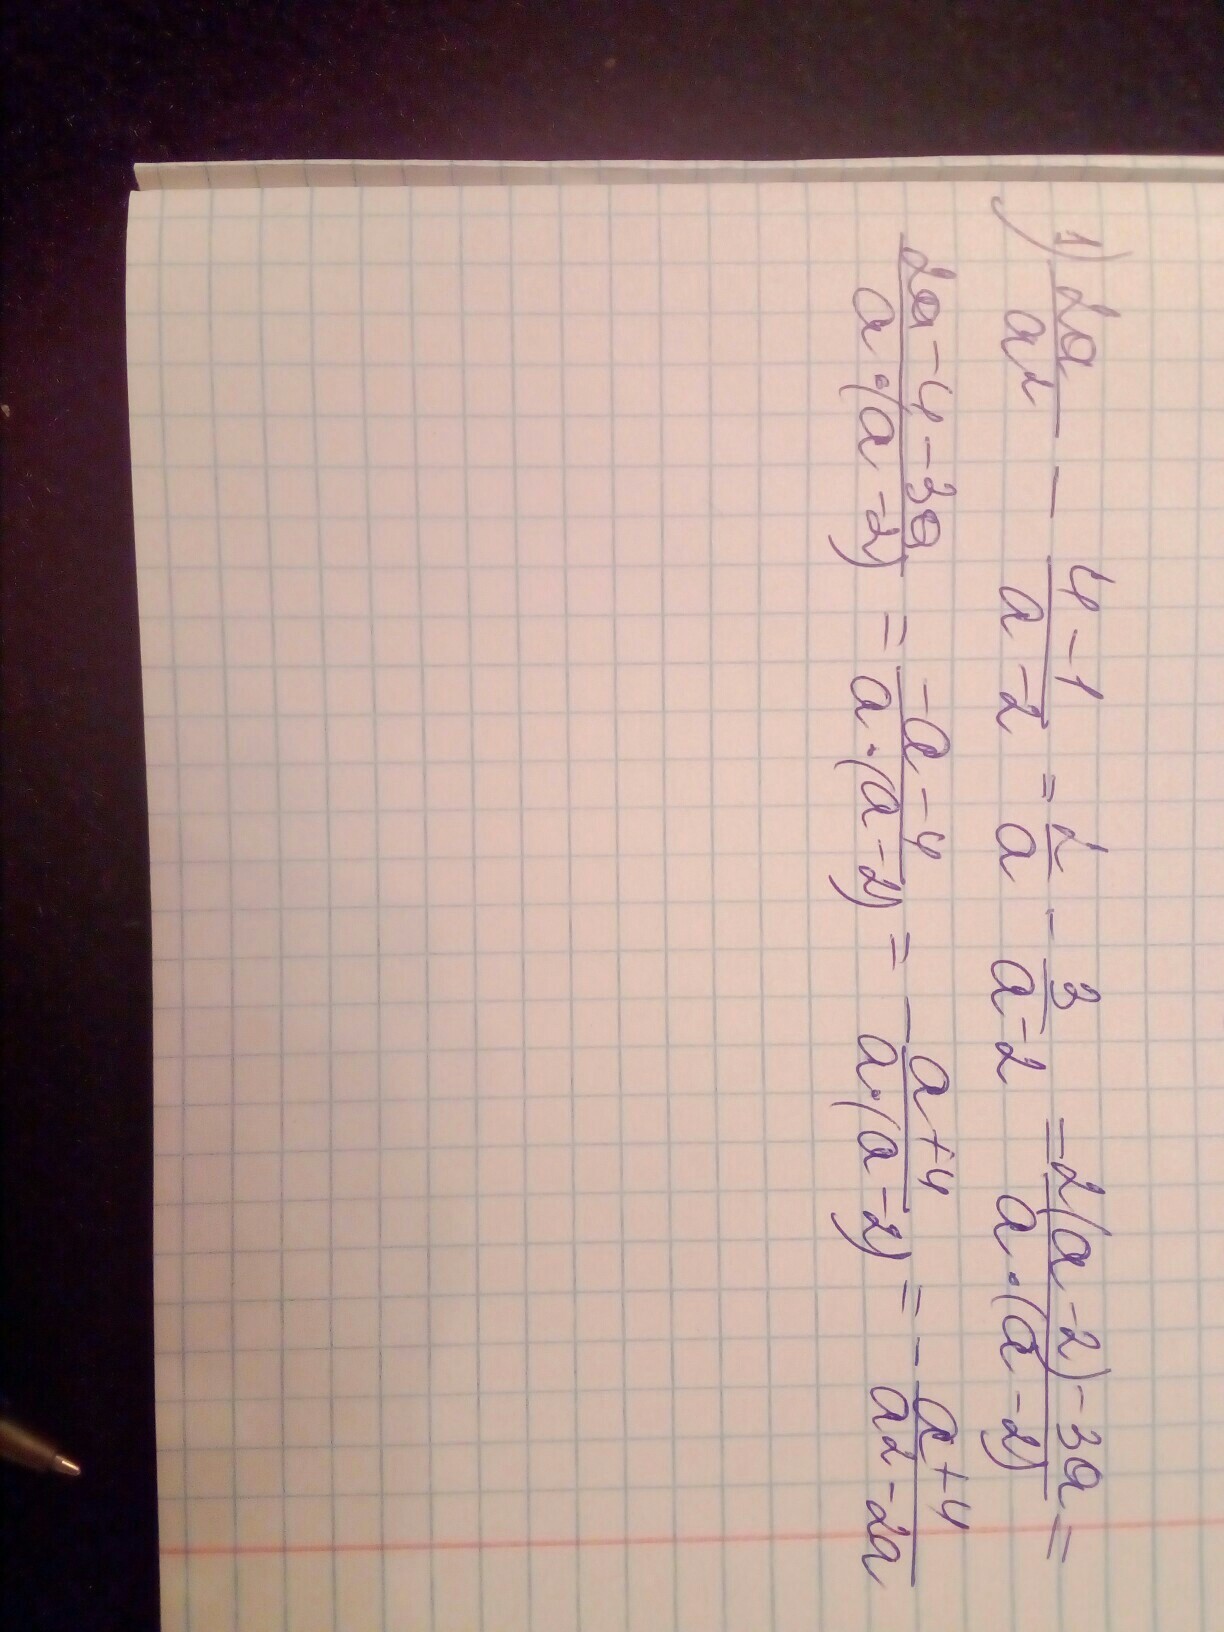 1) 2a/a² - 4-1/a-2 = 2/a - 3/a-2 = 2(a-2)-3a/a·(a-2) =
2a-4-3a/a·(a-2) = -a-4/a·(a-2) = - a+4/a·(a-2) = - a+4/a²-2a